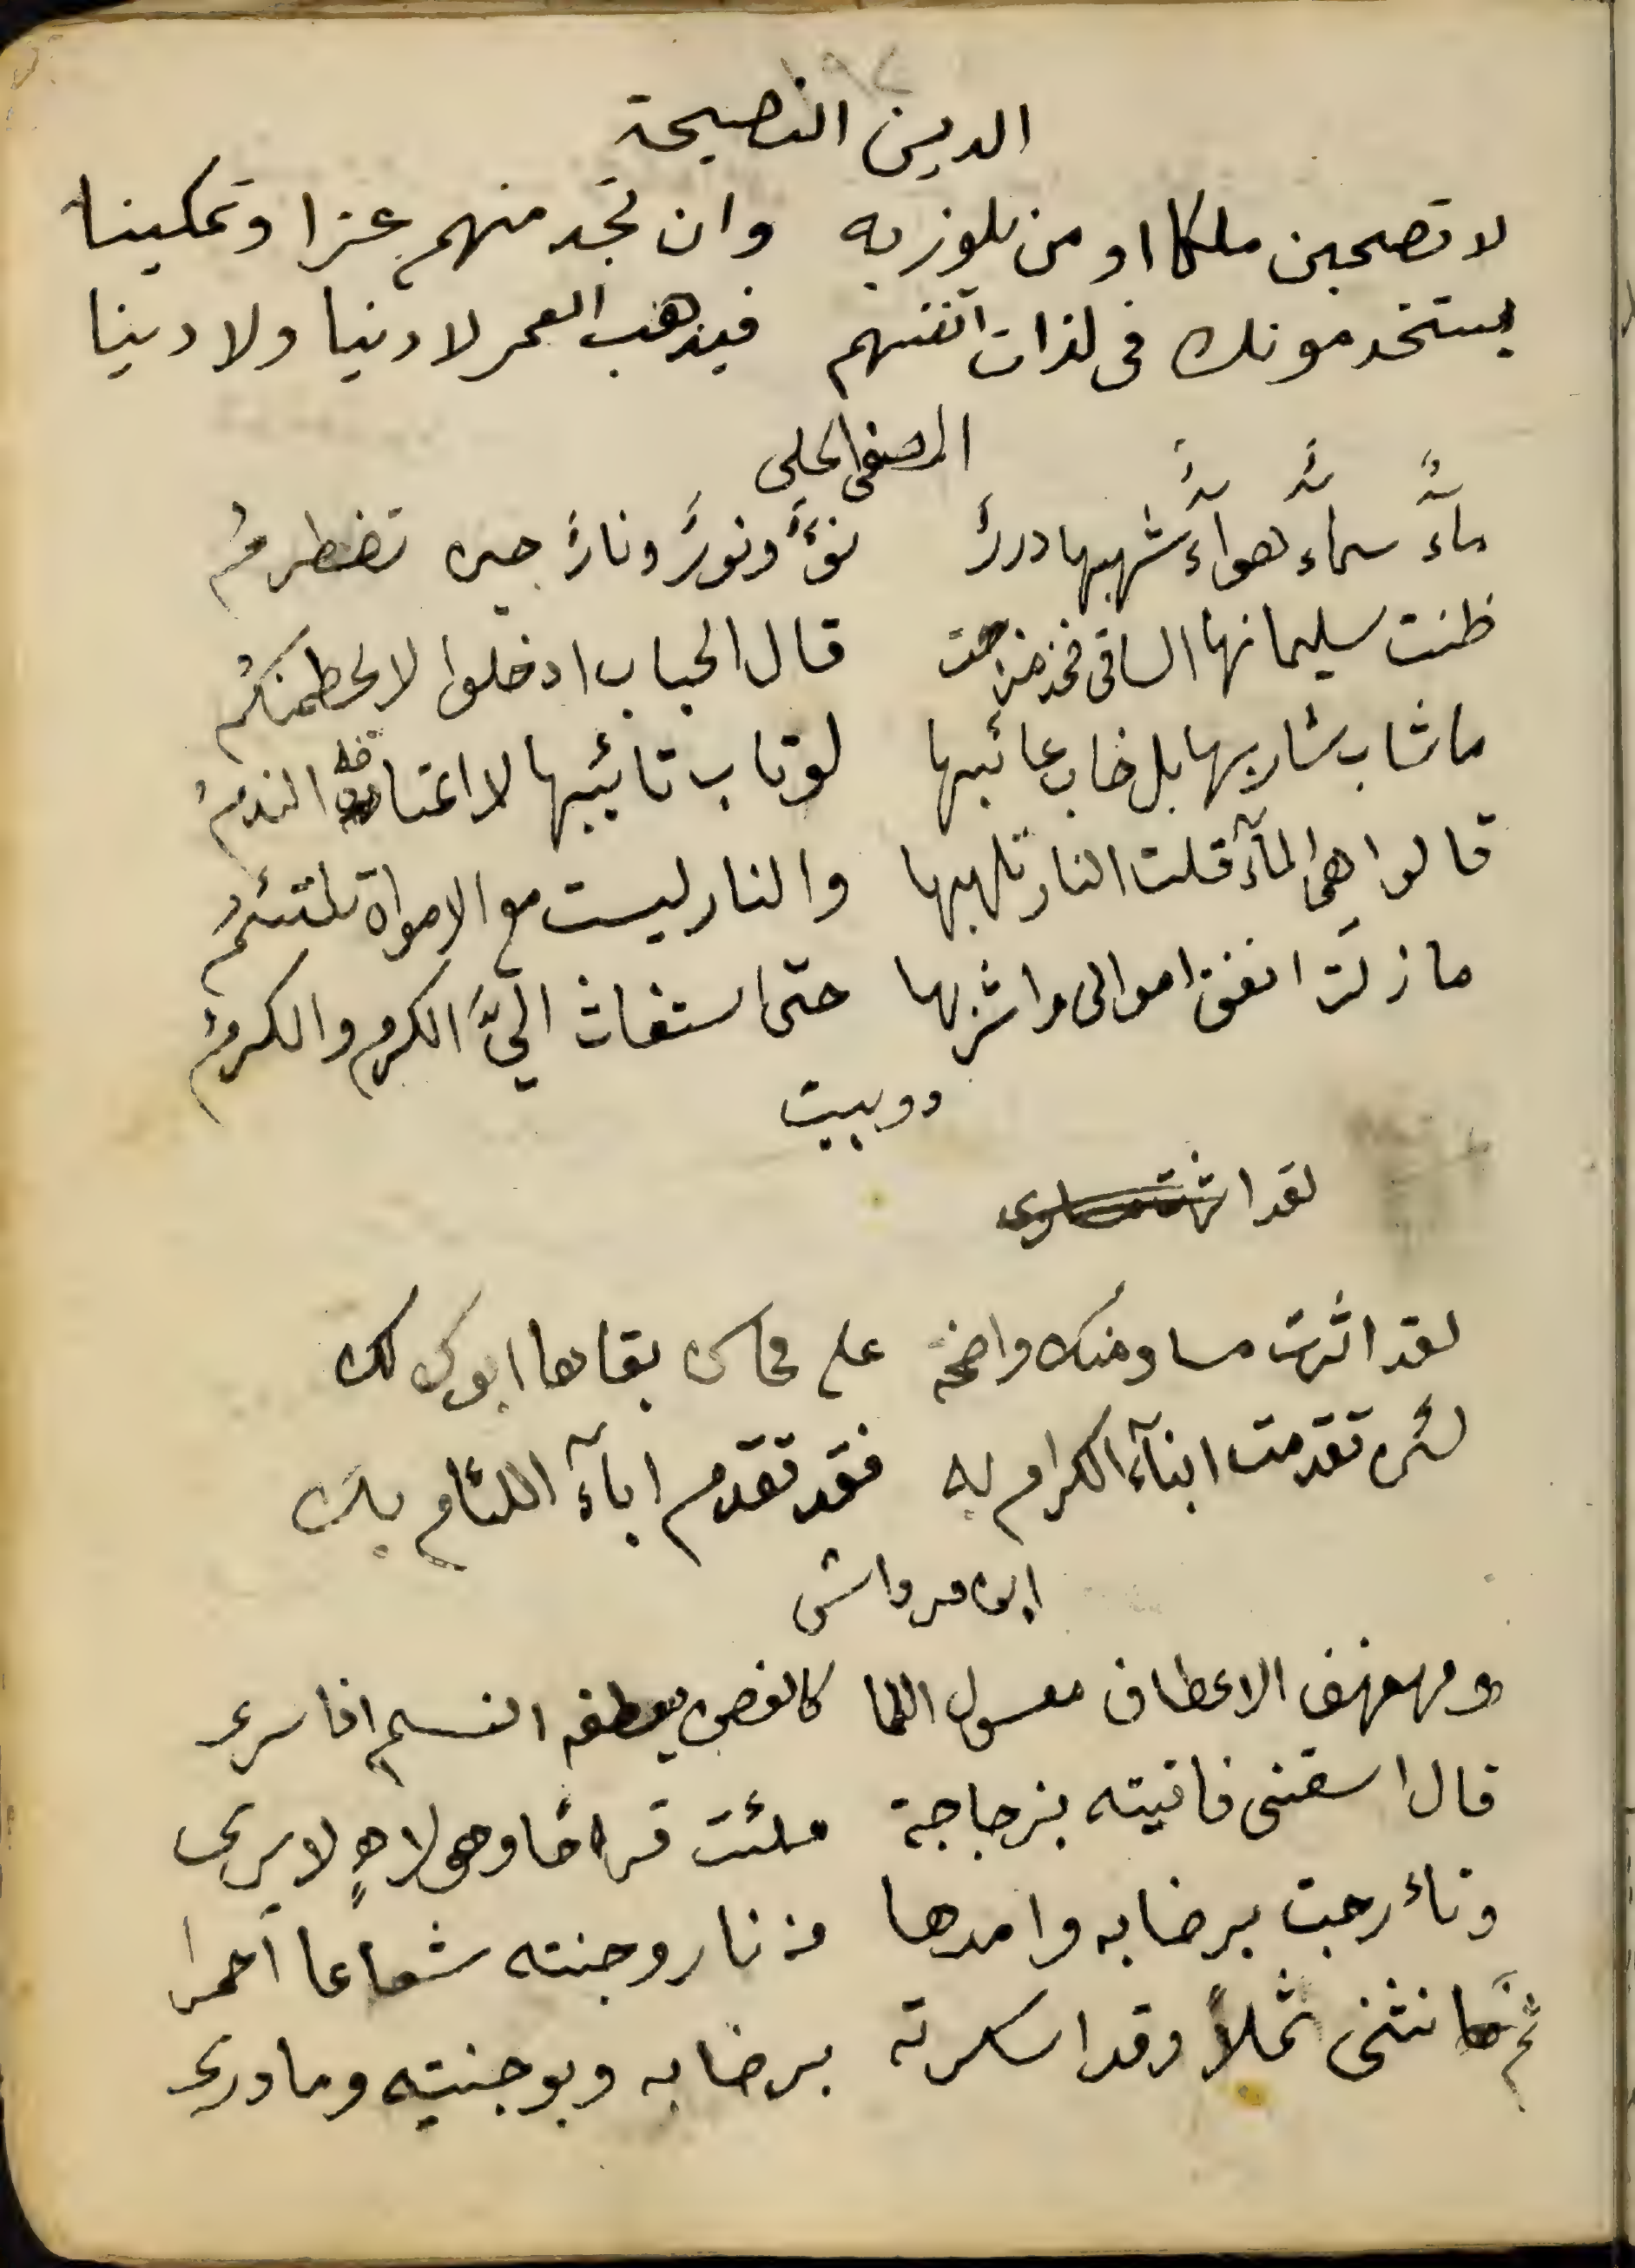 الدين النصيحة
لا تصحبن ملكا او من يلوز به وان تجد منهم عزا وتمكينا
يستخدمونك فى لذات انفسهم فيذهب العمر لا دنيا ولا دينا
الصفى الحلى
مآءٌ سمآءٌ هوآءٌ شهبها دررٌ نوٌّ ونورٌ ونارٌ حين تضطرمُ
ظنت سليمانها الساقى فخذ منزحت قال الحباب ادخلوا لا يحطمنكمُ
ما شاب شاربها بل خاب عائبها لو تاب تائبها لا اعتاضه الندمُ
قالوا هى المآء قلت النار تلهبها والنار ليست مع الامواة تلتئمُ
ما زلت انفق اموالى واشربها حتى استغاث اليَّ الكرم والكرمُ
دوبيت
لقد
لقد اثرت مساو منك واضحة على محاسن بقاها ابوك لك
لئن تقدمت ابنآء الكرام به فقد تقدم ابآء اللئام بك
ابن مرداش
ومهفهف الاعطاف معسول اللما كالغصن يعطفه النسيم اذا سرى
قال اسقنى فاتيته بزجاجة ملئت قراحًا وهو لاهٍ لا يرى
وتأرجت برضابه وامدها من نار وجنته شعاعا احمرا
ثم انثنى ثملاً وقد اسكرته برضابه وبوجنتيه وما درى